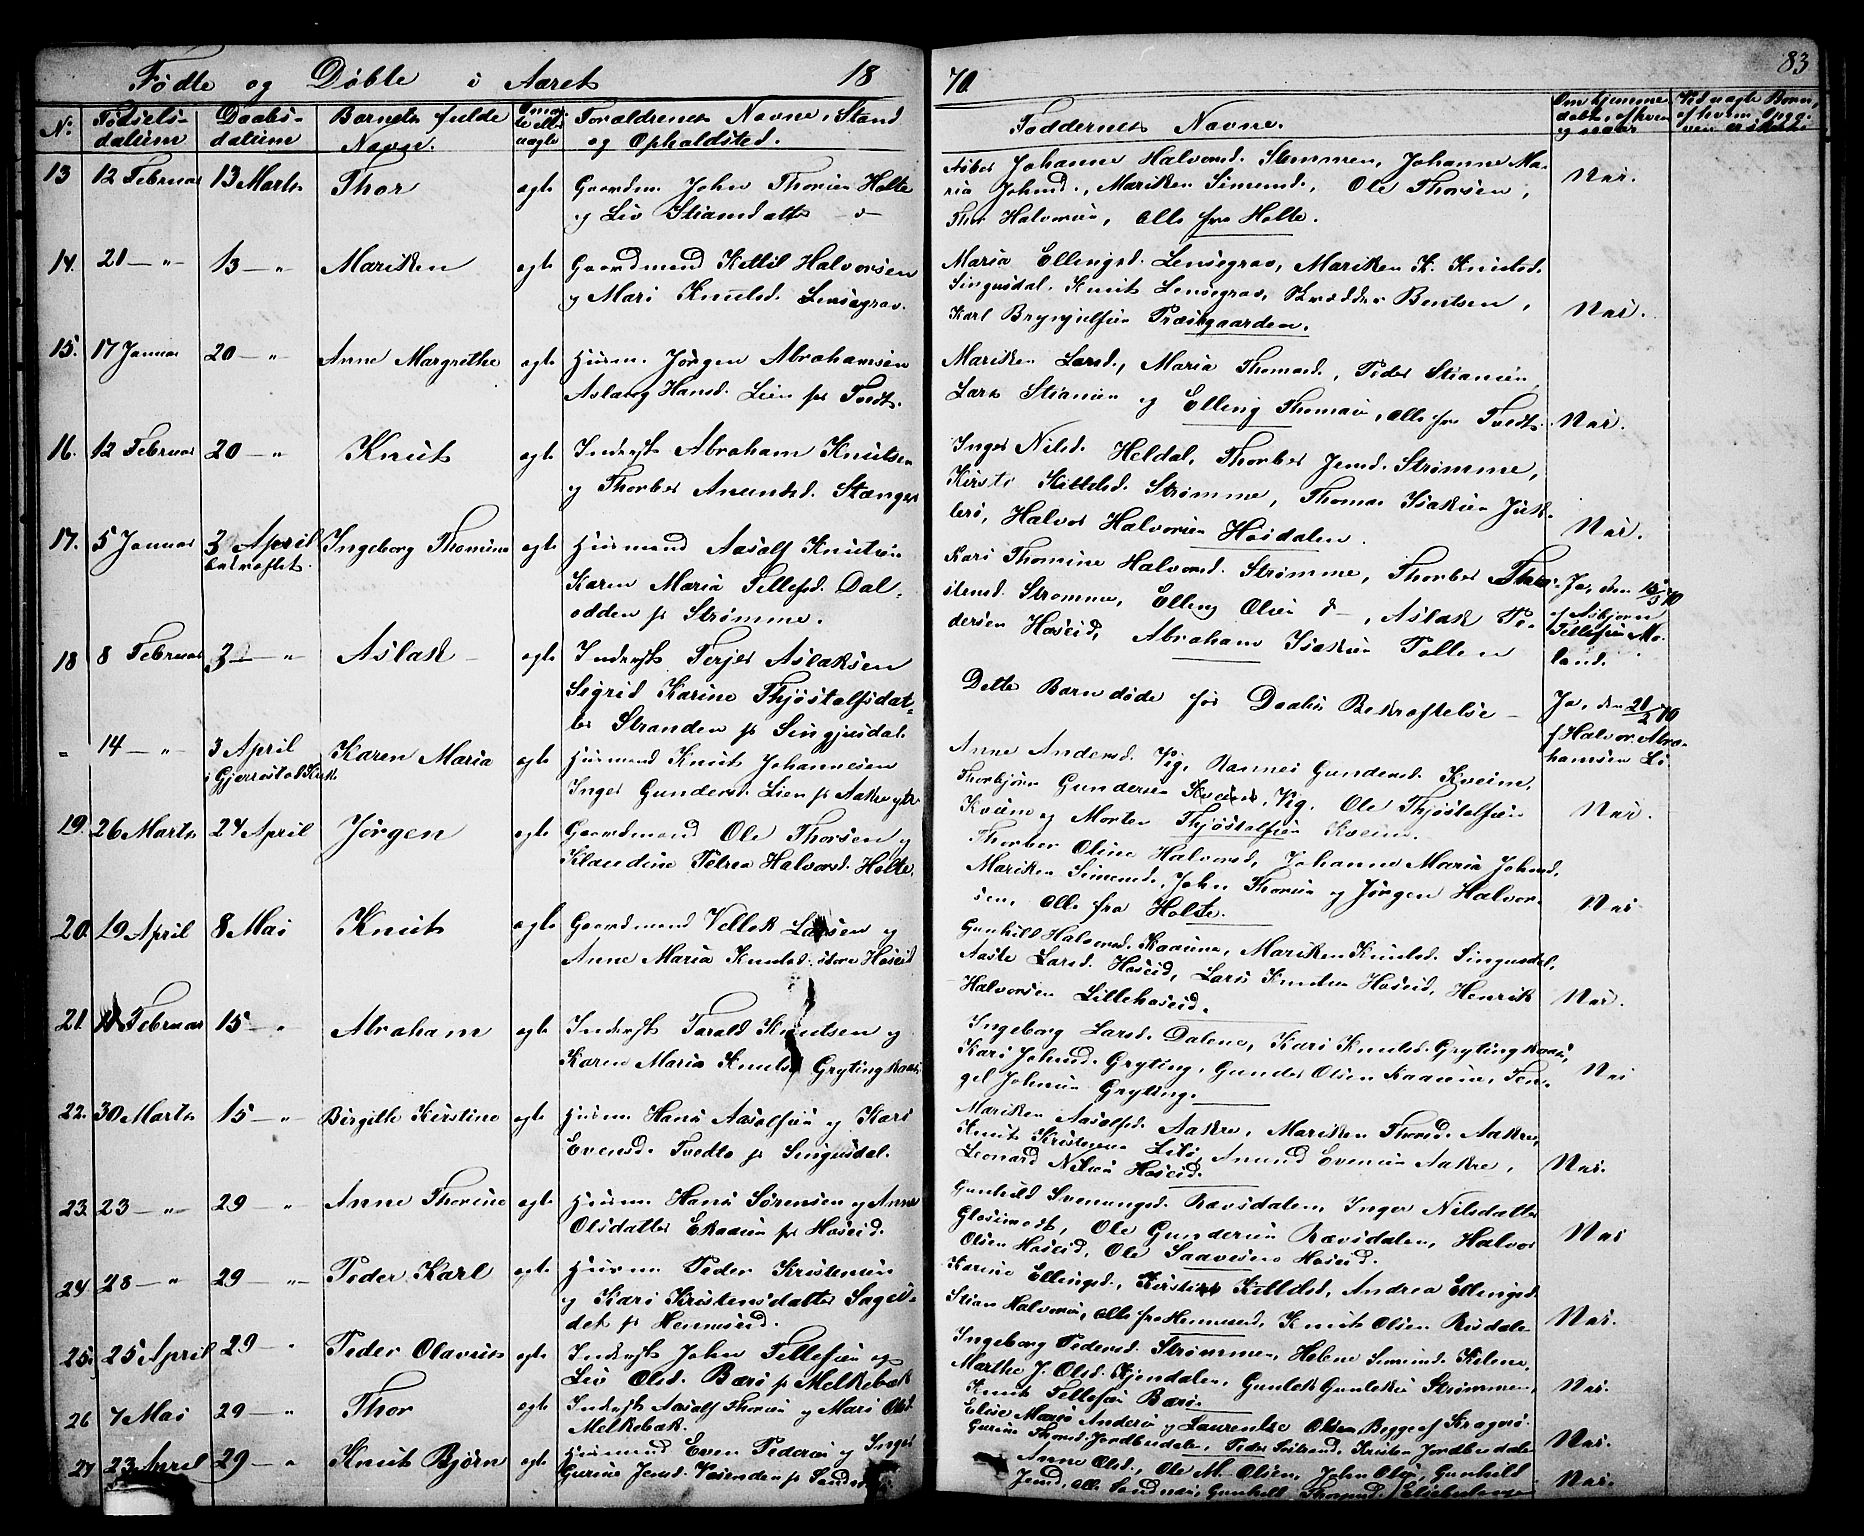 Fødte og Døbte i Aaret 18 70. 83
No. Fødsels-datum Daabs-datum Barnets fulde Navn. Om ægte eller uægte Forældrenes Navne, Stand og Opholdsted. Faddernes Navne. Om hjemmedøbt, af hvem og naar
13 12 Februar 13 Marts Thor ægte Gaardm. John Thorsen Holte
og Liv Stiansdatter — " —
Johanne Halvorsd. Stemmen, Johanne Ma-
ria Johnsd., Mariken Simonsd., Ole Thorsen,
Thor Halvorsen, Alle fra Holte.
Nei.
14. 21 — " 13 — " Mariken ægte Gaardmand Kittil Halvorsen
og Mari Knutsd. Lensegrav.
Maria Ellingsd. Lensegrav, Mariken K. Knutsd.
Singusdal. Knut Lensegrav, Skrædder Bentsen,
Karl Brynjulfsen Præstgaarden.
Nei.
15. 17 Januar 20 — " Anne Margrethe ægte Husm. Jørgen Abrahamsen
Aslaug Hansd. Lien pr Tvedt.
Mariken Larsd., Maria Thomasd., Peder Stiansen,
Lars Stiansen og Elling Thomasen, Alle fra Tvedt.
Nei.
16. 12 Februar 20 — " Knut ægte Inderst Abraham Knutsen
og Thorber Anundsd. Stanger
Inger Nilsd. Heldal, Thorber Jensd. Strømme,
Kirsti Kittelsd. Strømme, Thomas Isaksen
Halvor Halvorsen Høidalen.
Nei.
17. 5 Januar 3 April bekræftet. Ingeborg Thomine ægte Husmand Aasolf Knutsen
Karen Maria Tellefsd. Dal-
odden pr Strømme.
Kari Thomine Halvorsd. Strømme, Thorber
stensd. Strømme, Elling Olsen d —, Aslak Pe-
dersen Høseid, Abraham Isaksen Tollen
Ja, den
af Asbjørn
Tellefsen Mo-
land.
18 8 Februar 3 — " Aslak ægte Inderst Terjer Aslaksen
Sigrid Karine Thjøstolfsdat-
ter Stranden pr Singjusdal.
Dette Barn døde før Daabs Bekræftelse —
Ja, den 21/2 70
f Halvor Abra-
hamsen Li
" 14 — " 3 April i Gjerrestad Kirk Karen Maria ægte Husmand Knut Johannesen
Inger Gundersd. Lien pr Aakre ytre
Anne Andersd. Vig, Gundersd. Kveim,
Thorbjørn Gundersen Vig, Ole Thjøstolfsen
Kveim og Morten Thjøstolfsen Kveim.
Nei.
19. 26 Marts 24 April Jørgen ægte Gaardmand Ole Thorsen og
Klaudine Petrea Halvorsd. Holte.
Thorber Oline Halvorsd., Johanne Maria Johnsd.
Mariken Simonsd., John Thorsen og Jørgen Halvor-
sen, Alle fra Holte.
Nei
20. 19 April 8 Mai Knut ægte Gaardmand Vellek Larsen og
Anne Maria Knutsd. store Høseid
Gunhild Halvorsd. Kaasene, Mariken Knutsd. Singusdal,
Aaste Larsd. Høseid, Lars Knutsen Høseid, Henrik
Halvorsen Lillehøseid.
Nei.
21. Februar 15 — " Abraham ægte Inderst Tarald Knutsen og
Karen Maria Knutsd. Grytingkaas
Ingeborg Larsd. Dalene, Kari Knutsd. Grytingkaas,
Kari Johnsd. Gryting, Gunder Olsen Kaasene, Ten-
gel Johnsen Gryting.
Nei
22. 30 Marts 15 — " Birgithe Kirstine ægte Husm. Hans Aasolfsen og Kari
Evensd. Tvedte pr Singusdal.
Mariken Aasolfsd. Aakre, Mariken Thorsd. Aakre,
Knut Kristensen Anund Evensen Aakre,
Leonard Nilsen Høseid.
Nei.
23. 23 — " 29 — " Anne Thorine ægte Husm. Hans Sørensen og Anne
Olsdatter Ekaasen pr Høseid.
Gunhild Svenungsd. Rævsdalen, Inger Nilsdatter
Glosimodt, Ole Gundersen Rævsdalen, Halvor
Olsen Høseid, Ole Saavesen Høseid.
Nei
24. 28 — " 29 — " Peder Karl ægte Husm. Peder Kristensen
og Kari Kristensdatter
pr Henneseid.
Karine Ellingsd., Kittelsd., Andrea Ellingsd.
Stian Halvorsen, alle fra Henneseid, Knut Olsen
Nei.
25. 25 April 29 — " Peder Olavus ægte Inderst John Tellefsen og
Liv Olsd. Barø pr Melkebæk
Ingeborg Pedersd. Strømmen, Helene Simonsd. Kilene,
Marthe J. Olsd. Kjendalen, Gunlek Gunleksen Strømmen,
Knut Tellefsen Barø.
Nei.
26 7 Mai 29 — " Thor ægte Inderst Aasolf Thorsen og Mari Olsd.
Melkebæk.
Elise Marie Andersen og Laurentse Olsen Begge af Kragerø.
Gurine Thorsd. Jordbudalen, Peder Kristen Jordbudalen
Nei.
27 23 April 29 — " Knut Bjørn ægte Husmand Even Pedersen og Inger
Gurine Jensd. pr Sandnes
Anne Olsd., Ole M. Olsen, John Olsen, Gunhild
Jensd., alle Sandnes, Gunhild
Nei.